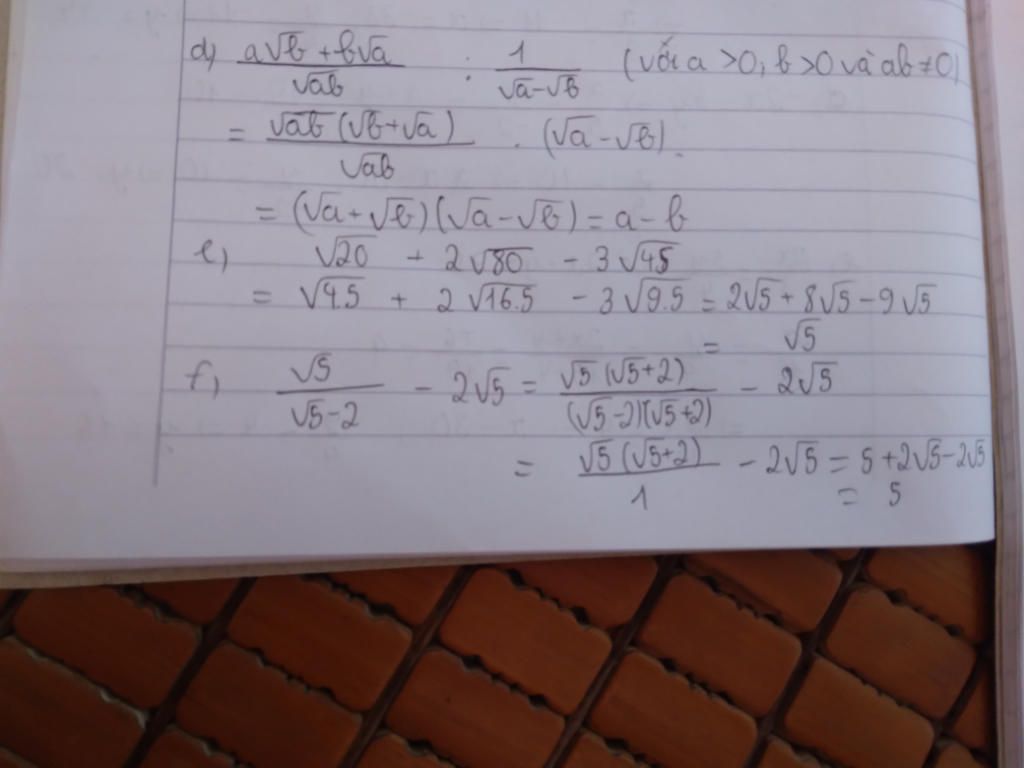 d) (a√b + b√a)/√ab : 1/(√a-√b) (với a >0; b >0 và ab ≠0)
= √ab (√b+√a)/√ab . (√a -√b).
= (√a+√b)(√a -√b) = a - b
e) √20 + 2√80 - 3√45
= √4.5 + 2√16.5 - 3√9.5 = 2√5 + 8√5 - 9√5
= √5
f) √5/(√5-2) - 2√5 = √5(√5+2)/(√5-2)(√5+2) - 2√5
= √5(√5+2)/1 - 2√5 = 5+2√5-2√5
= 5